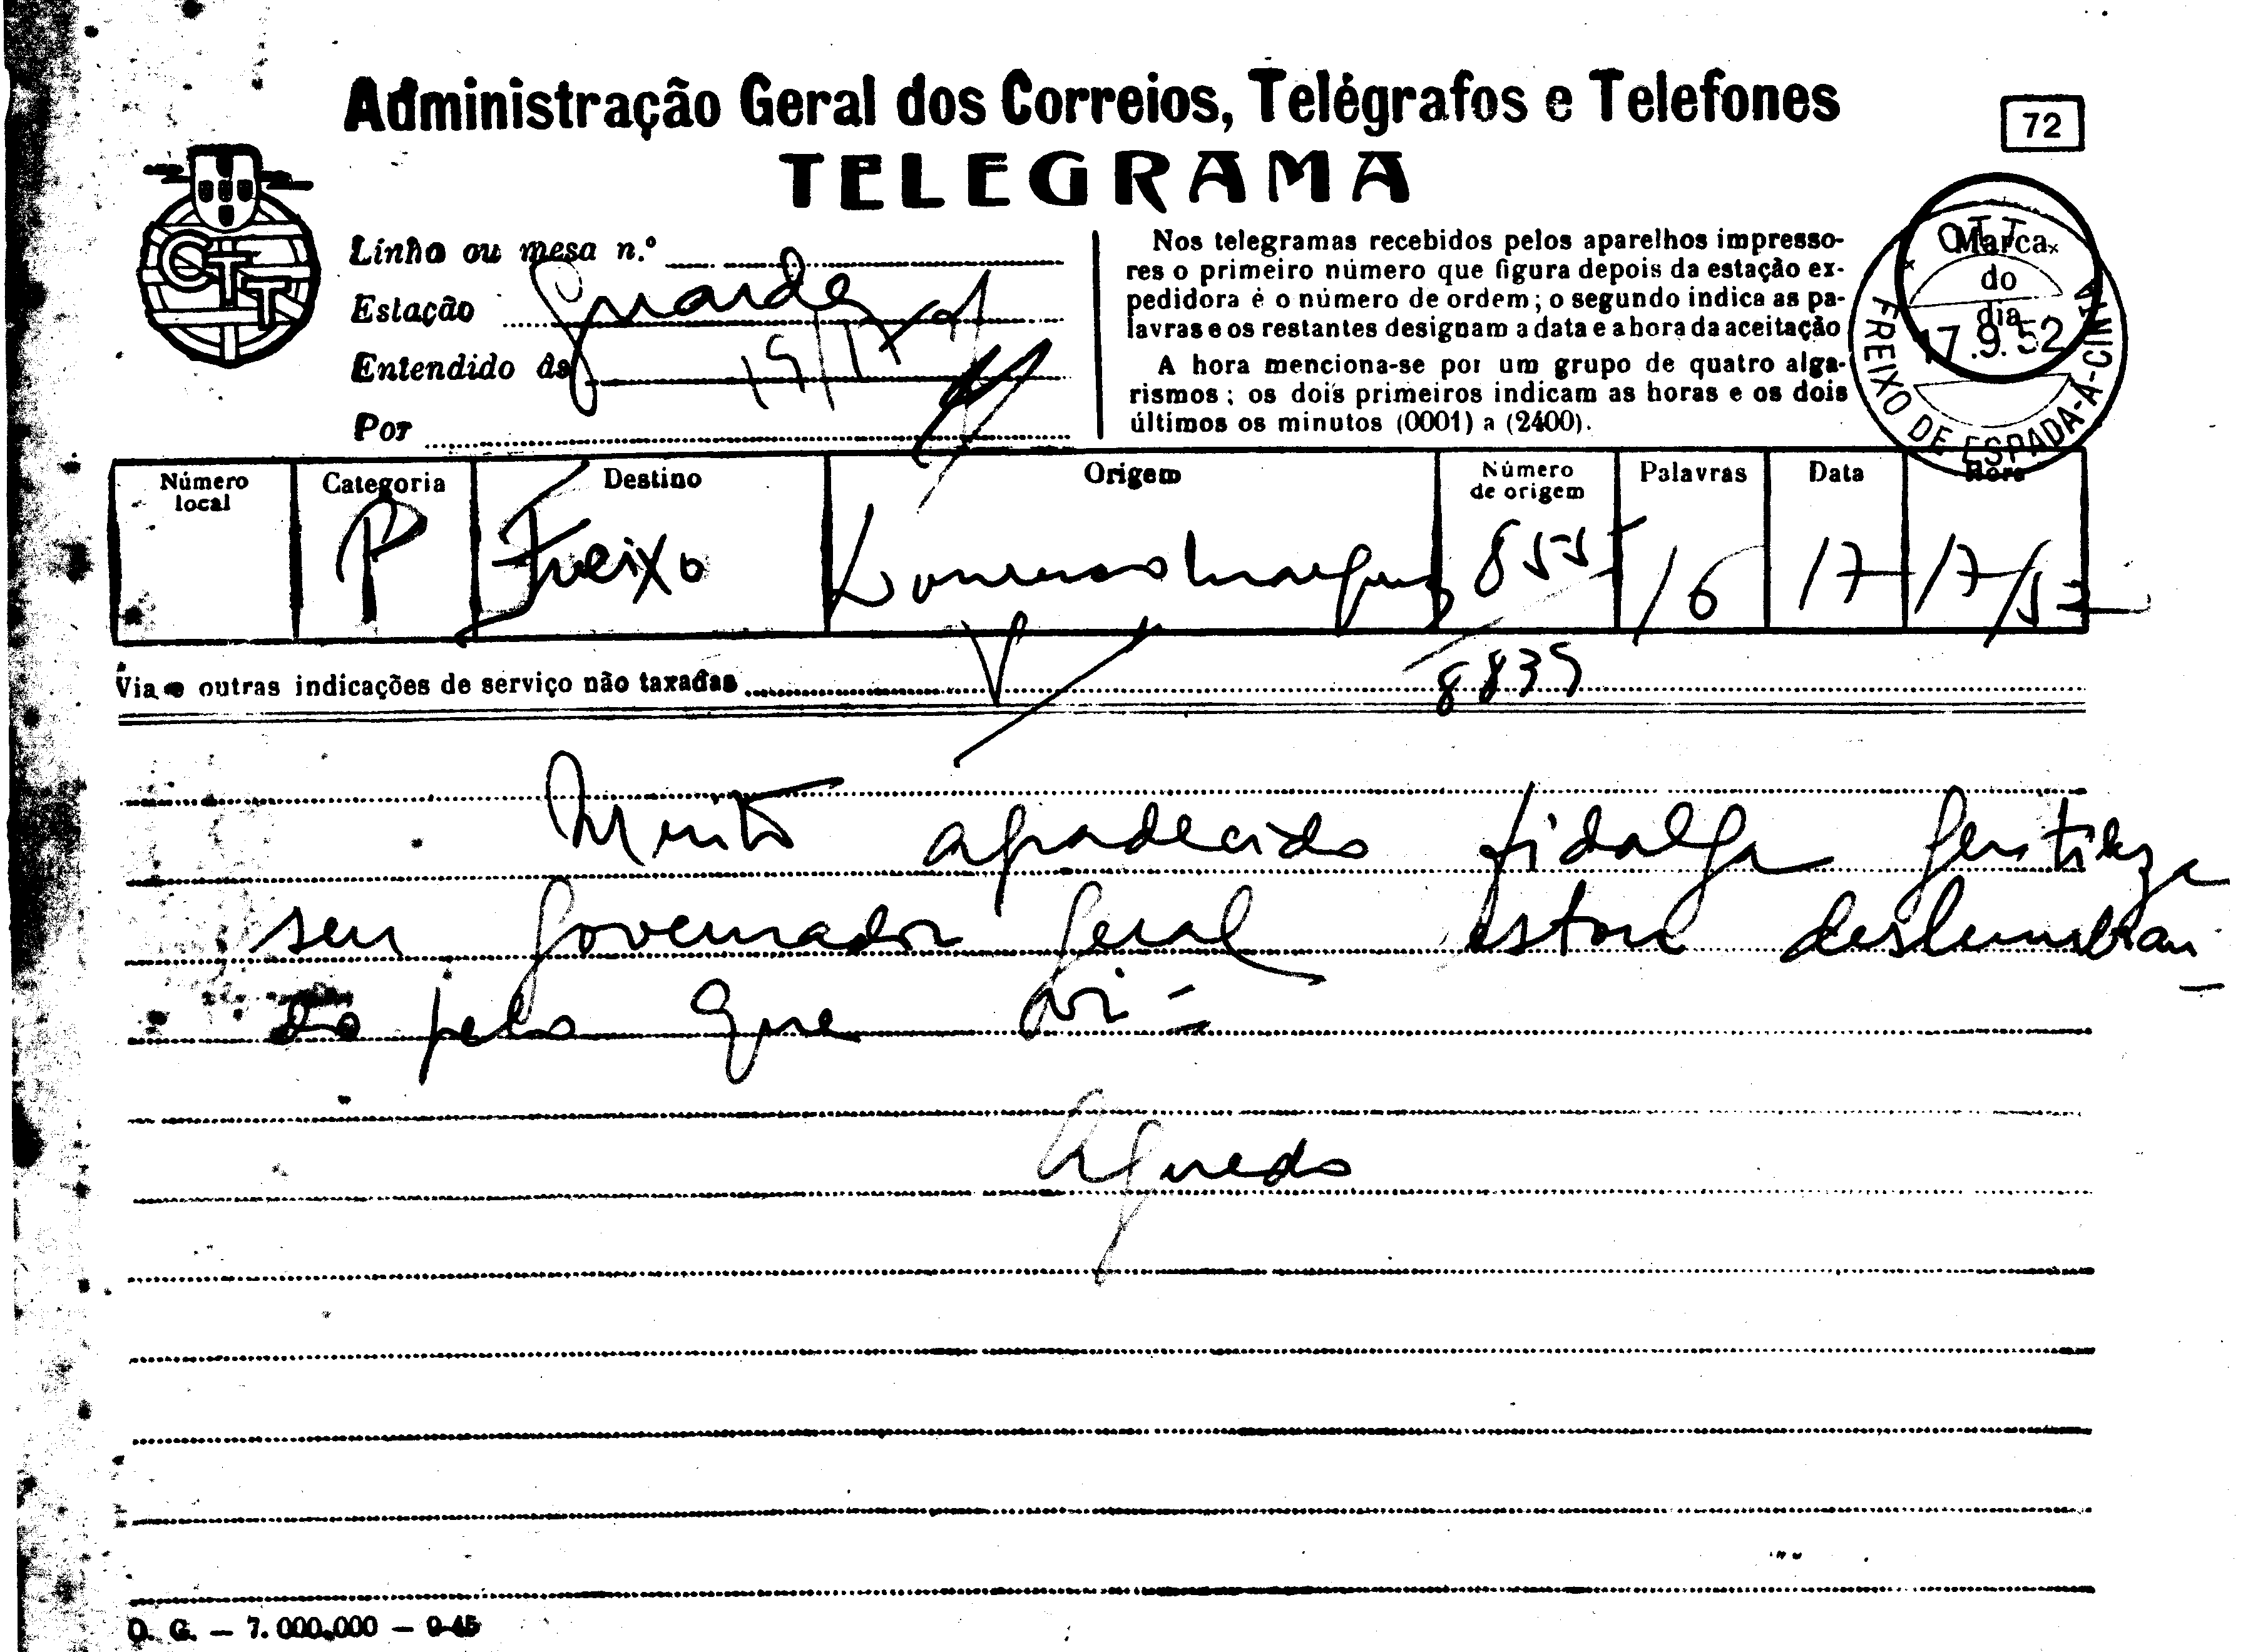 Administração Geral dos Correios, Telégrafos e Telefones
72
TELEGRAMA
CTT
Linha ou mesa n.º
Estação Guarda
Entendido às 19/17
Por
Nos telegramas recebidos pelos aparelhos impresso-
res o primeiro número que figura depois da estação ex-
pedidora é o número de ordem; o segundo indica as pa-
lavras e os restantes designam a data e a hora da aceitação
A hora menciona-se por um grupo de quatro alga-
rismos; os dois primeiros indicam as horas e os dois
últimos os minutos (0001) a (2400).
Marca
do
dia
CTT
17.9.52
FREIXO DE ESPADA-À-CINTA
Número local Categoria Destino Origem Número de origem Palavras Data Hora
P Freixo Lourenso Marques 855 16 17 17/52
8839
Via e outras indicações de serviço não taxadas
Muito agradecido fidalga gentileza
seu governador geral estou deslumbran-
do pelo que vi =
Aguedo
O. G. — 7.000.000 — 9-45